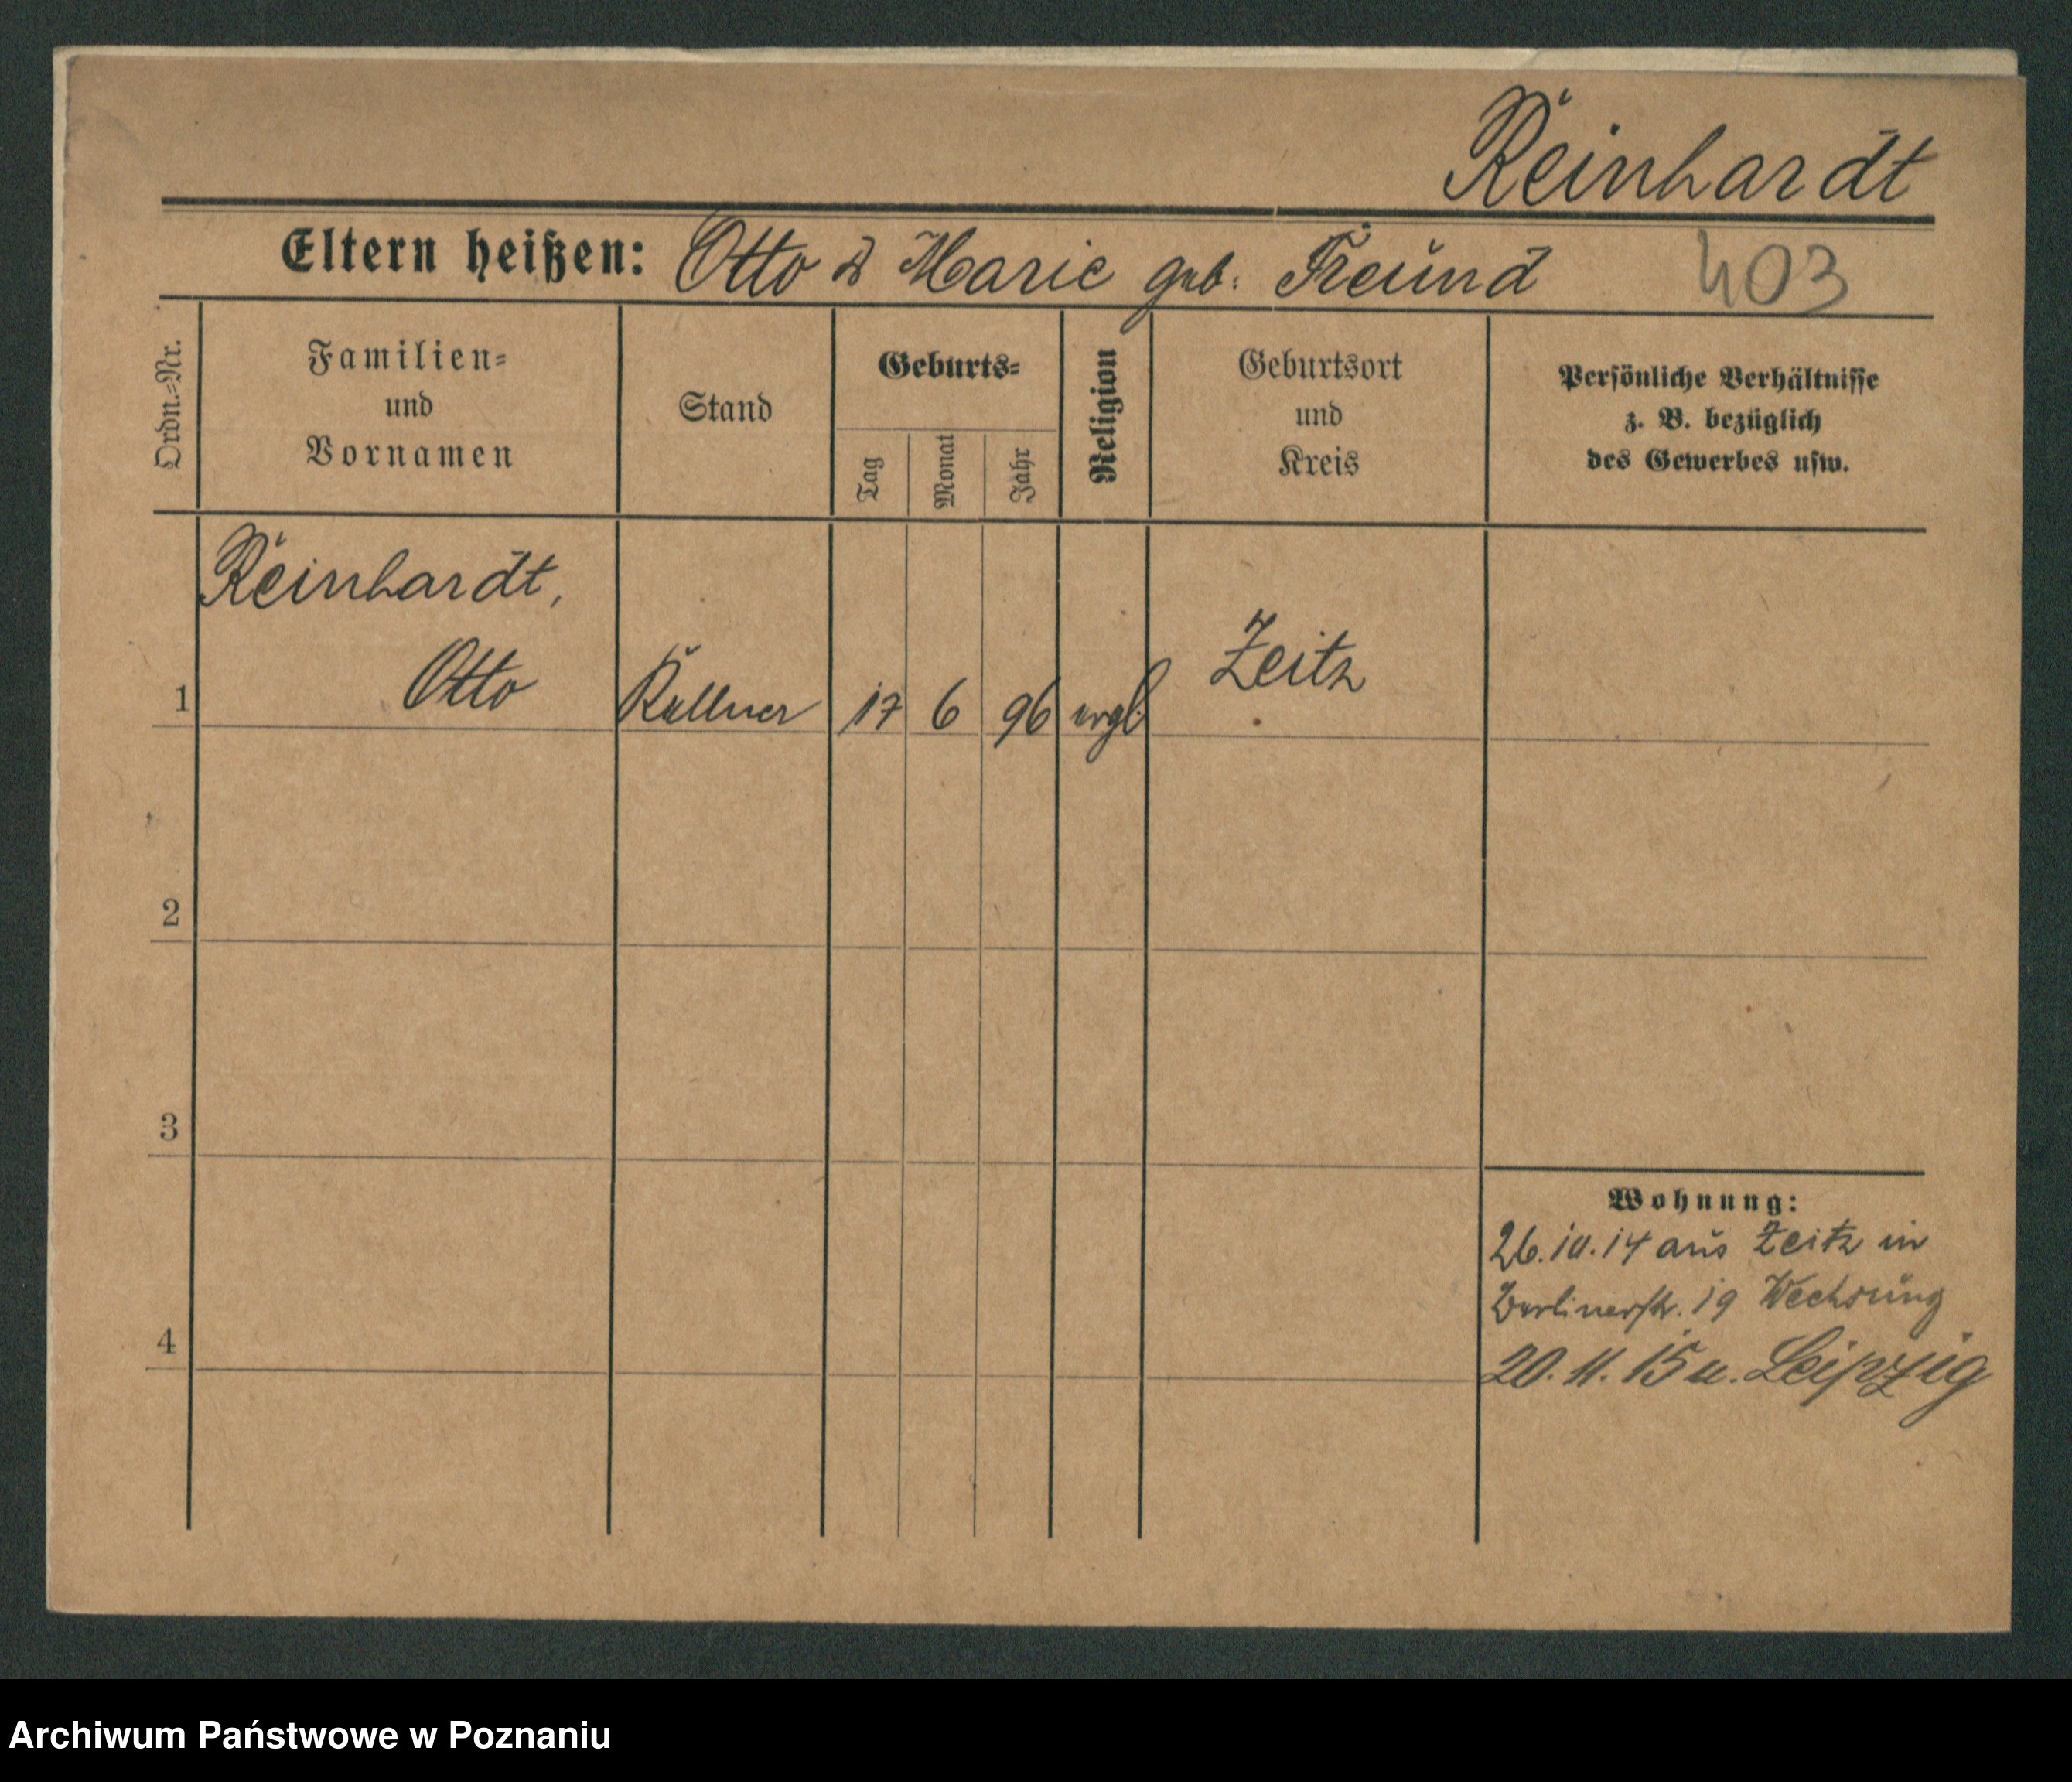 Reinhardt
Eltern heißen: Otto & Marie geb. Freund 403
Ordn.=Nr.
Familien=
und
Vornamen
Stand
Geburts=
Tag
Monat
Jahr
Religion
Geburtsort
und
Kreis
Persönliche Verhältnisse
z. B. bezüglich
des Gewerbes usw.
Reinhardt,
1 Otto Kellner 17 6 96 evgl Zeitz
2
3
4
Wohnung:
26.10.14 aus Zeitz in
Berlinerstr. 19
20.11.15 u. Leipzig
Archiwum Państwowe w Poznaniu